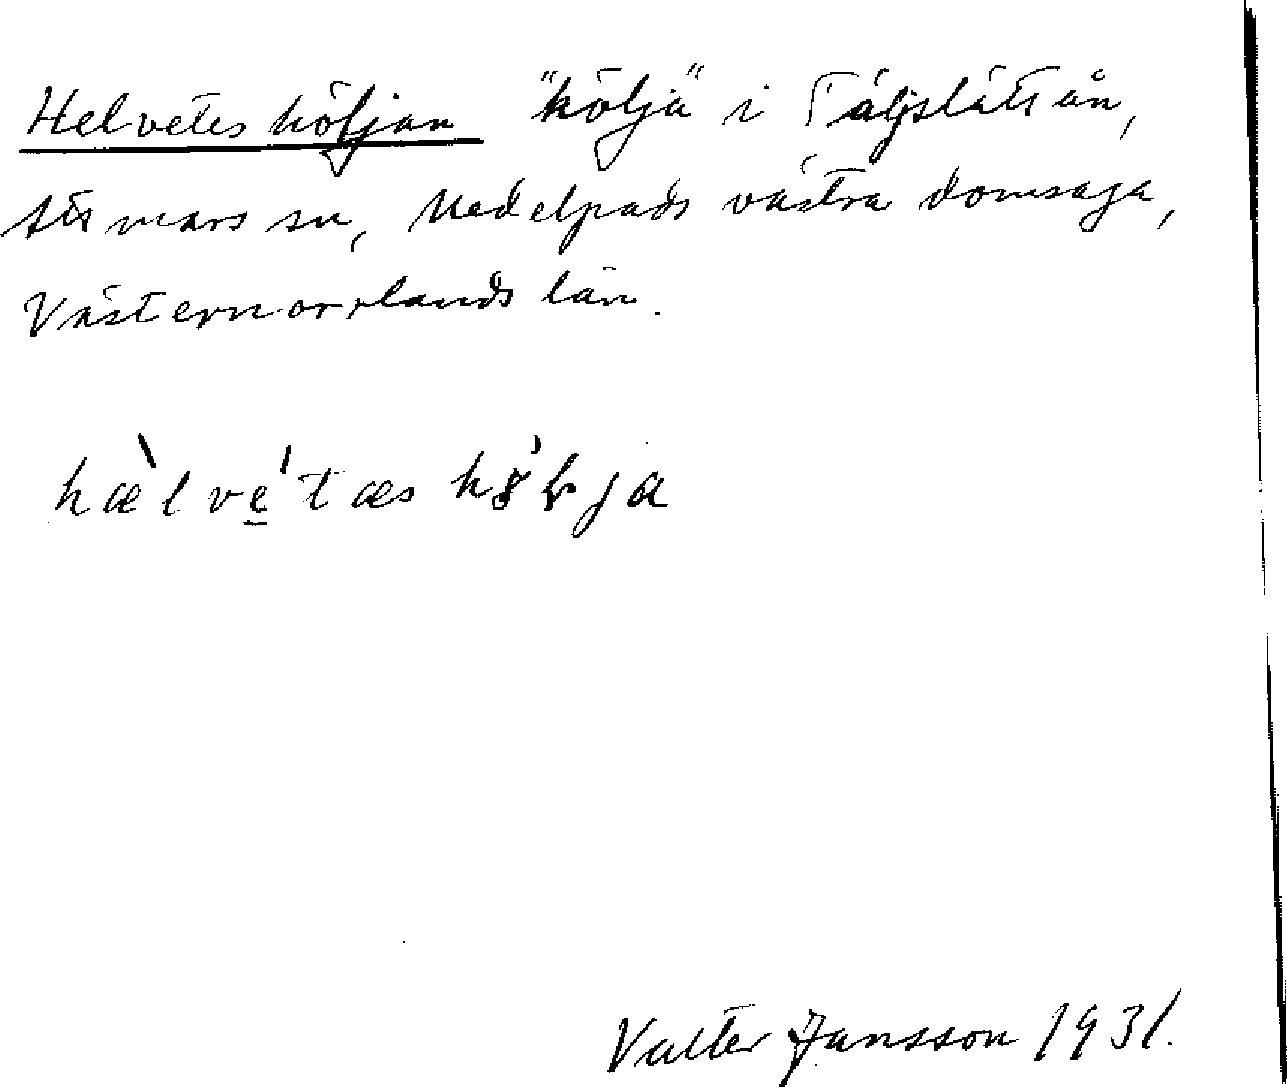 Helvetes höljan "hölja" i Täljeslättån,
Attmars sn, Medelpads västra domsaga,
Västernorrlands län.
hæ̀lvé̱tæs hɵ̀ɫja
Valter Jansson 1931.